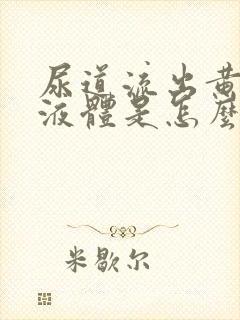 尿道流出黄
液體是怎麼
米歇尔